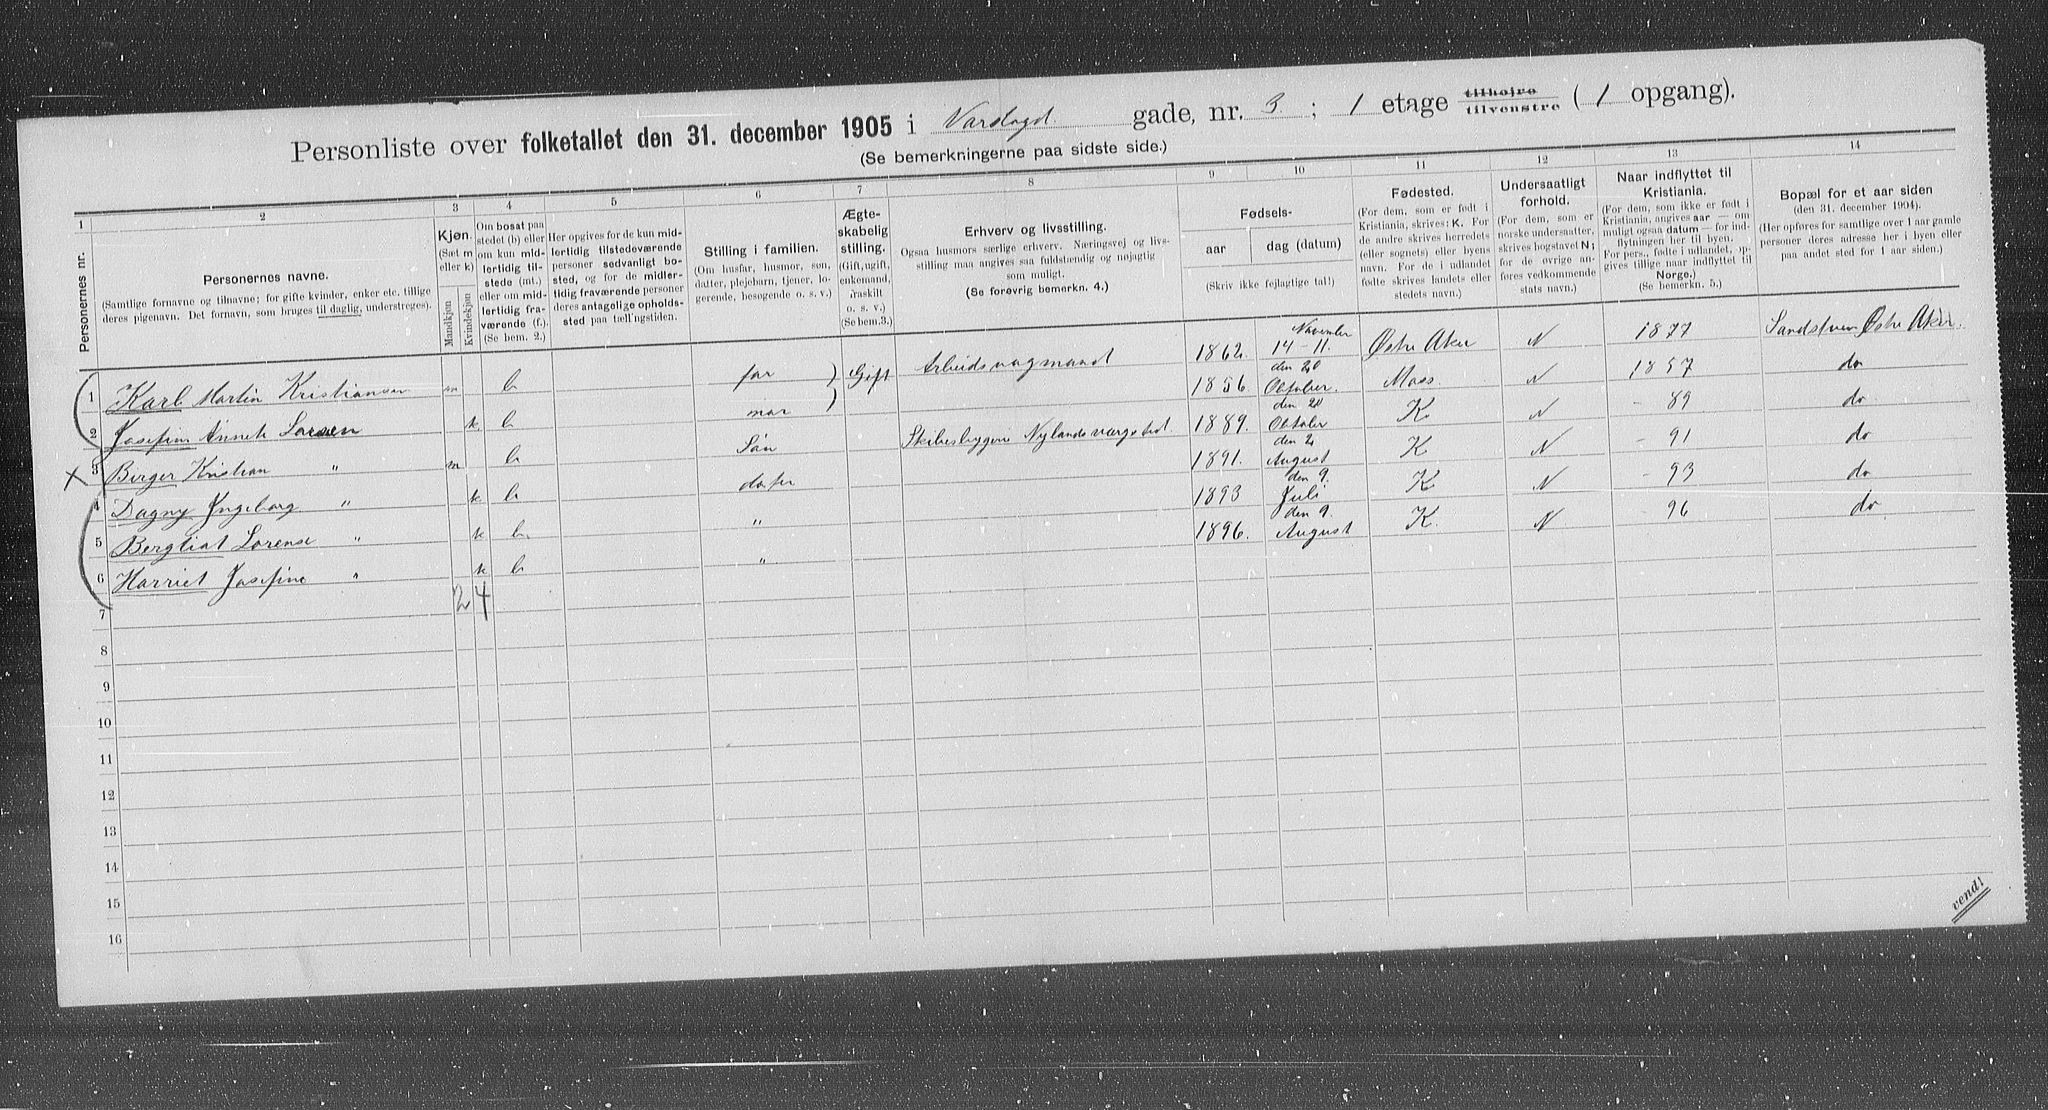 Personliste over folketallet den 31. december 1905 i Vardøgd. gade, nr. 3 ; 1 etage tilhøjre / tilvenstre ( 1 opgang).
(Se bemerkningerne paa sidste side.)
1 2 3 4 5 6 7 8 9 10 11 12 13 14
Personernes nr.
Personernes navne.
(Samtlige fornavne og tilnavne; for gifte kvinder, enker etc. tillige
deres pigenavn. Det fornavn, som bruges til daglig, understreges).
Kjøn.
(Sæt m
eller k)
Mandkjøn
Kvindekjøn
Om bosat paa
stedet (b) eller
om kun mid-
lertidig til-
stede (mt.)
eller om mid-
lertidig fra-
værende (f.)
(Se bem. 2.)
Her opgives for de kun mid-
lertidig tilstedeværende
personer sedvanligt bo-
sted, og for de midler-
tidig fraværende personer
deres antagelige opholds-
sted paa tællingstiden.
Stilling i familien.
(Om husfar, husmor, søn,
datter, plejebarn, tjener, lo-
gerende, besøgende o. s. v.)
Ægte-
skabelig
stilling.
(Gift, ugift,
enkemand,
fraskilt
o. s. v.)
(Se bem.3.)
Erhverv og livsstilling.
Ogsaa husmors særlige erhverv. Næringsvej og livs-
stilling maa angives saa fuldstændig og nøjagtig
som muligt.
(Se forøvrig bemerkn. 4.)
Fødsels-
aar
dag (datum)
(Skriv ikke fejlagtige tal!)
Fødested.
(For dem, som er født i
Kristiania, skrives: K. For
de andre skrives herredets
(eller sognets) eller byens
navn. For de i udlandet
fødte skrives landets eller
stedets navn.)
Undersaatligt
forhold.
(For dem, som er
norske undersaatter,
skrives bogstavet N;
for de øvrige an-
føres vedkommende
stats navn.)
Naar indflyttet til
Kristiania.
(For dem, som ikke er født i
Kristiania, angives aar — om
muligt ogsaa datum — for ind-
flytningen her til byen.
For pers., fødte i udlandet, op-
gives tillige naar indflyttet til
Norge.)
(Se bemerkn. 5.)
Bopæl for et aar siden
(den 31. december 1904).
(Her opføres for samtlige over 1 aar gamle
personer deres adresse her i byen eller
paa andet sted for 1 aar siden.)
1 Karl Martin Kristiansen m b far Gift Arbeidsvagmand 1862. November 14-11. Østre Aker N 1877 Sandstuen Østre Aker.
2 Josefine Annete Larsen k b mor 1856 den 20 Oktober. Moss. N 1857 do
3 Birger Kristian " m b Søn Skibsbyggeri Nylandsværgsted 1889. den 20 Oktober K N - 89 do
X
4 Dagny Ingeborg " k b dater 1891. den 2 August K N - 91 do
5 Bergliat Lorense " k b. " 1893 den 9. Juli K N - 93 do
6 Harriet Josefine " k b " 1896. den 9. August K. N - 96 do
7 2 4
8
9
10
11
12
13
14
15
16
vend!